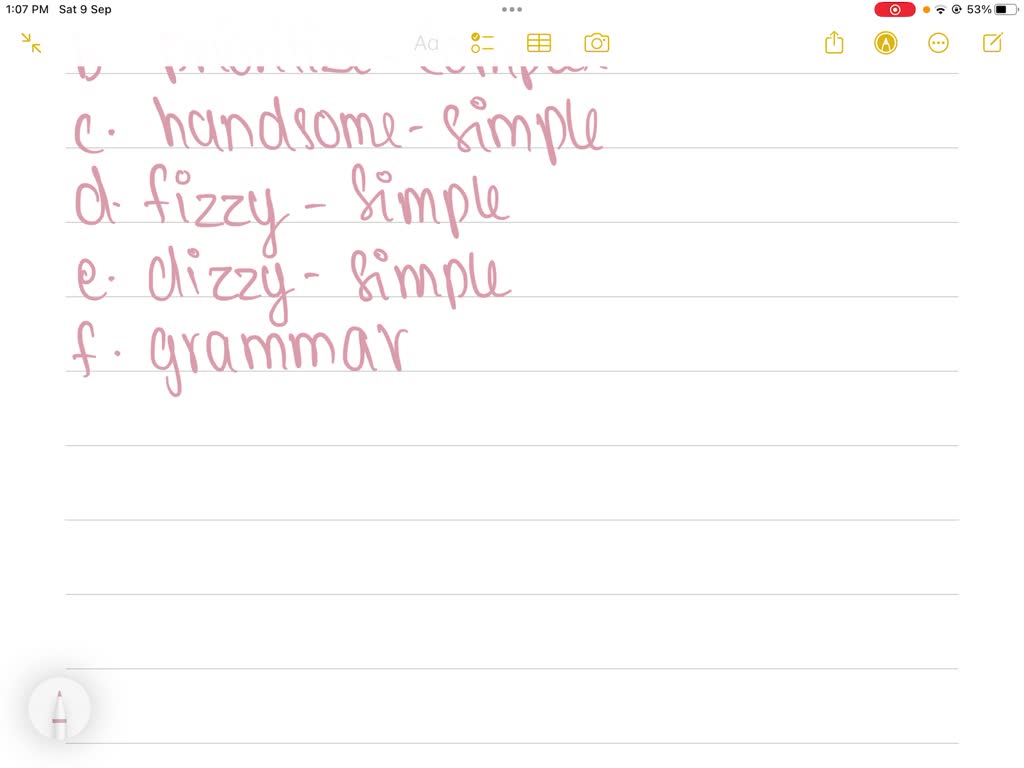 1:07 PM Sat 9 Sep 53%
Aa
c. handsome - simple
d. fizzy - simple
e. dizzy - simple
f. grammar